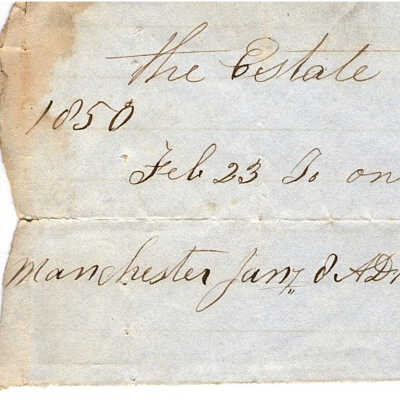 the Estate
1850
Feb 23 To on
Manchester Jany 8 AD